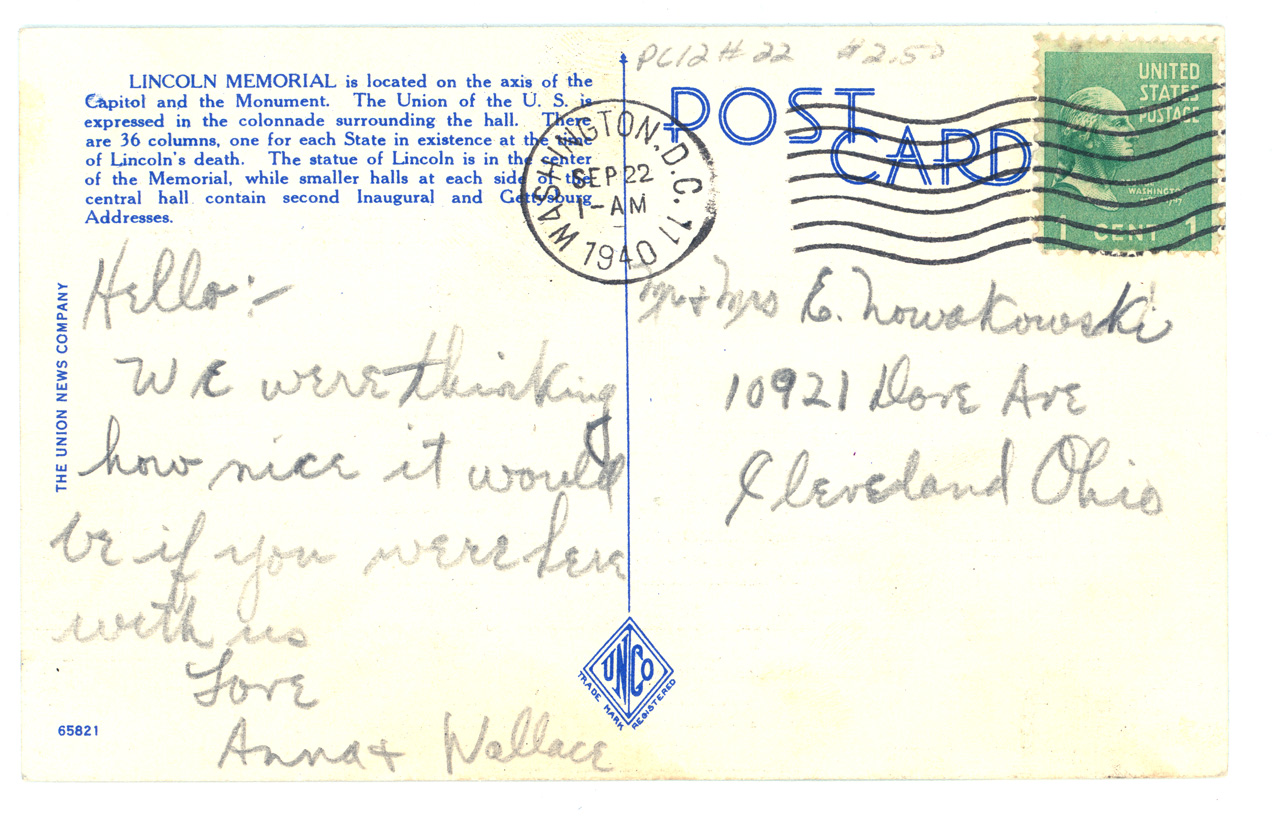 PC12#22 $2.50
LINCOLN MEMORIAL is located on the axis of the
Capitol and the Monument. The Union of the U. S. is
expressed in the colonnade surrounding the hall. There
are 36 columns, one for each State in existence at the time
of Lincoln's death. The statue of Lincoln is in the center
of the Memorial, while smaller halls at each side of the
central hall contain second Inaugural and Gettysburg
Addresses.
POST
CARD
WASHINGTON, D.C. 11
SEP 22
1-AM
1940
UNITED
STATES
POSTAGE
WASHINGTON
1 CENT 1
THE UNION NEWS COMPANY
Hello:-
We were thinking
how nice it would
be if you were here
with us
Love
Anna + Wallace
Mr + Mrs E. Nowakowski
10921 Dove Ave
Cleveland Ohio
UNCO
TRADE MARK REGISTERED
65821